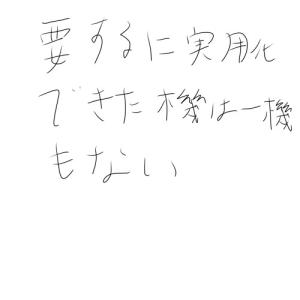 要するに実用化
できた機は一機
もない